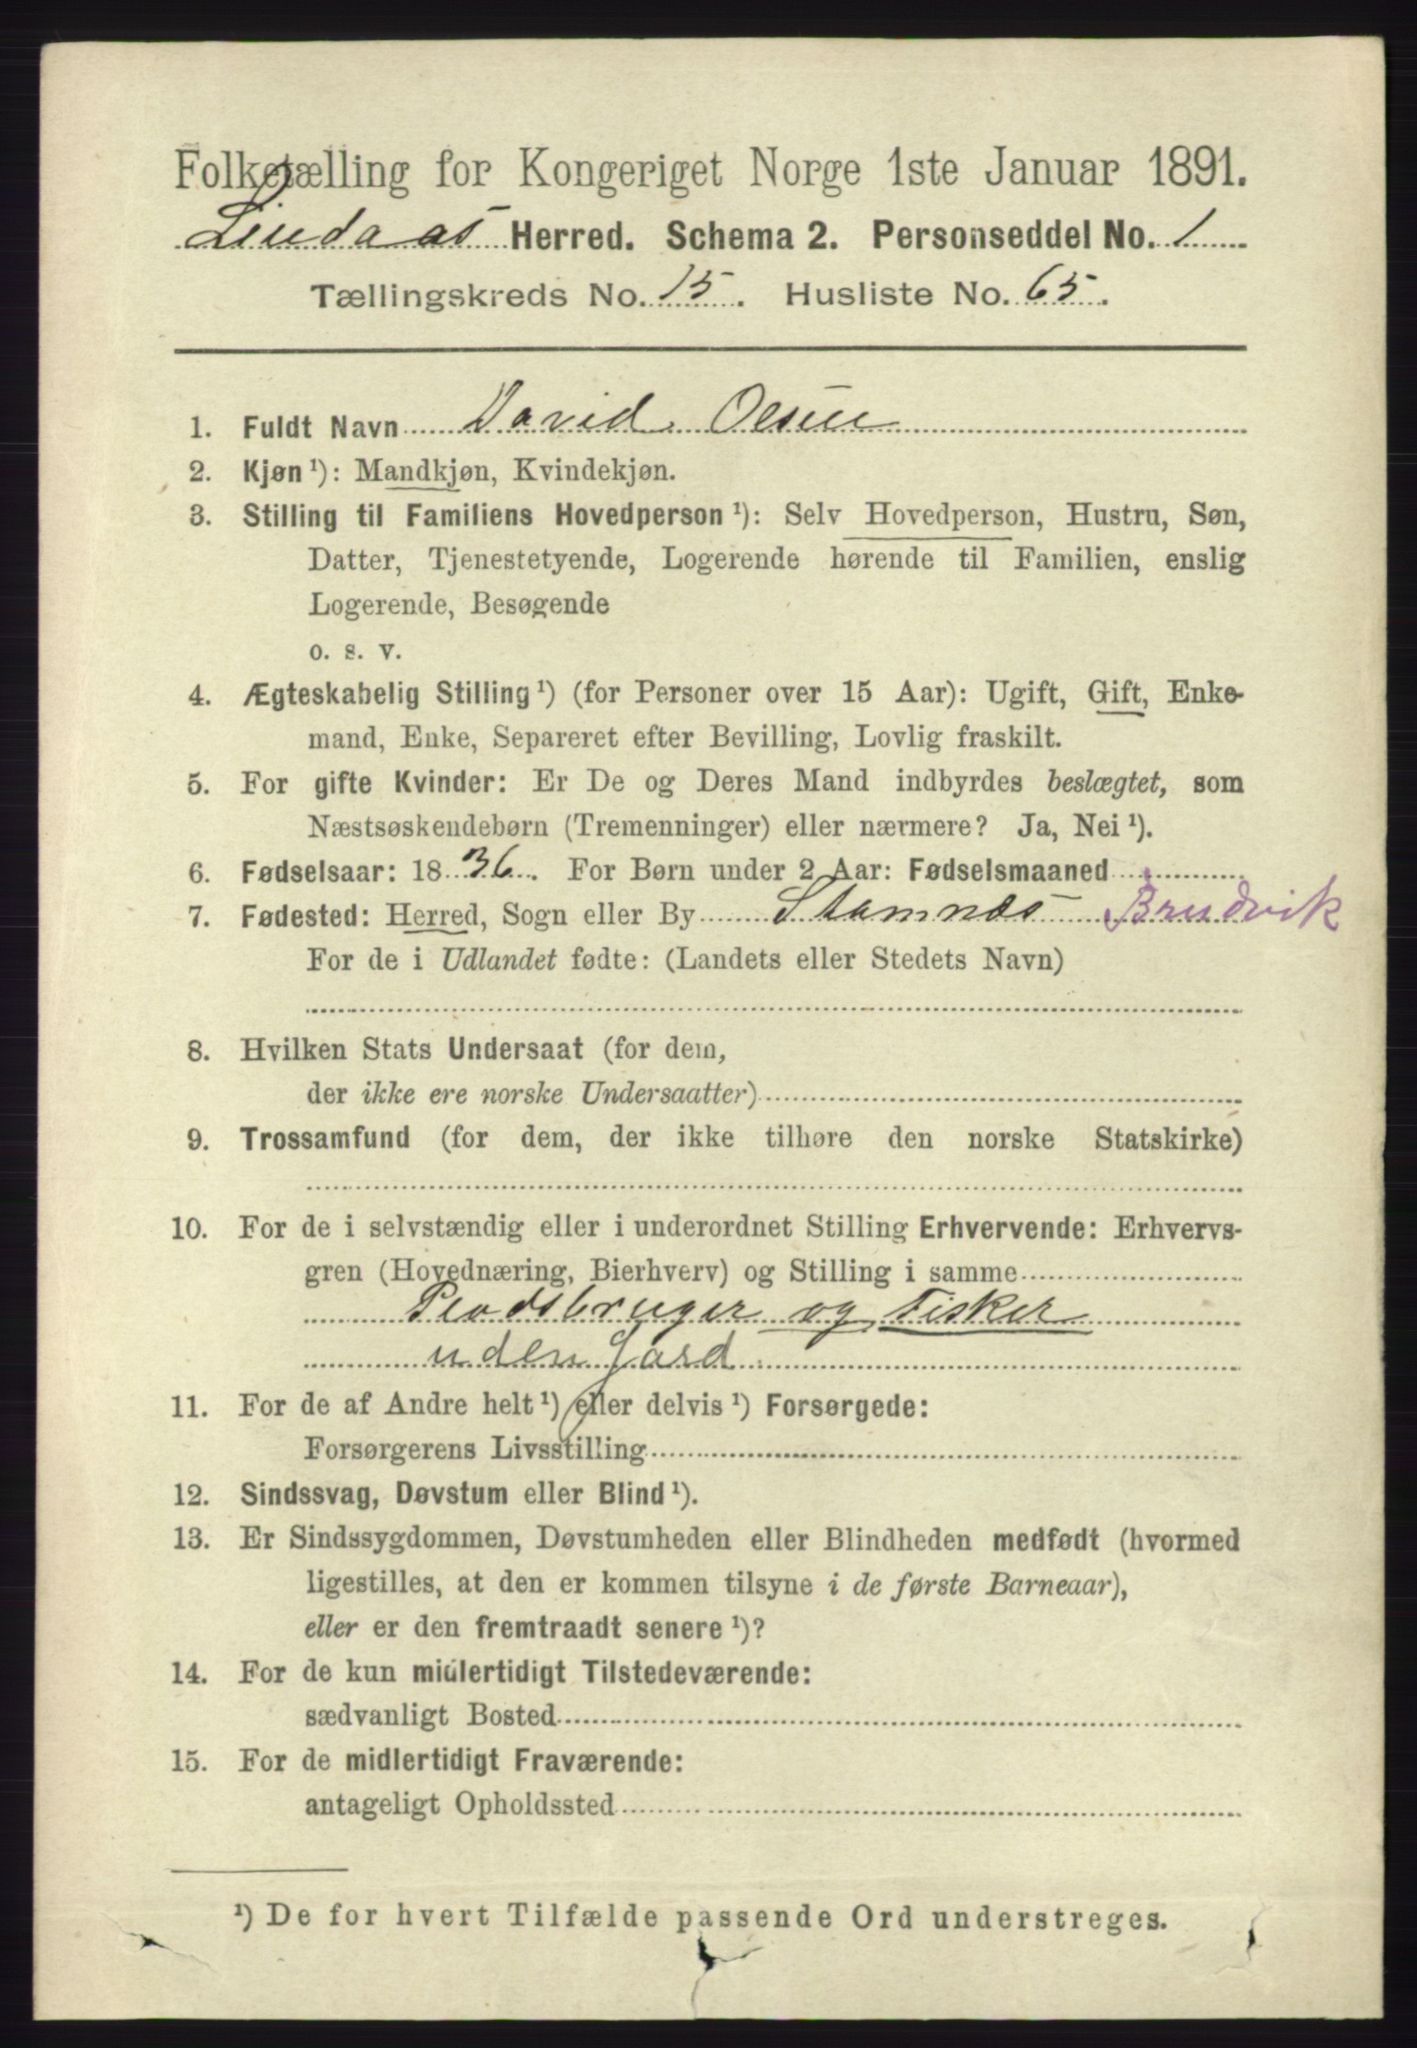 Folketælling for Kongeriget Norge 1ste Januar 1891.
Lindaas Herred. Schema 2. Personseddel No. 1
Tællingskreds No. 15. Husliste No. 65.
1. Fuldt Navn David Olsen
2. Kjøn ¹): Mandkjøn, Kvindekjøn.
3. Stilling til Familiens Hovedperson ¹): Selv Hovedperson, Hustru, Søn,
Datter, Tjenestetyende, Logerende hørende til Familien, enslig
Logerende, Besøgende
o. s. v.
4. Ægteskabelig Stilling ¹) (for Personer over 15 Aar): Ugift, Gift, Enke-
mand, Enke, Separeret efter Bevilling, Lovlig fraskilt.
5. For gifte Kvinder: Er De og Deres Mand indbyrdes beslægtet, som
Næstsøskendebørn (Tremenninger) eller nærmere? Ja, Nei ¹).
6. Fødselsaar: 1836. For Børn under 2 Aar: Fødselsmaaned
7. Fødested: Herred, Sogn eller By Stamnæs Brudvik
For de i Udlandet fødte: (Landets eller Stedets Navn)
8. Hvilken Stats Undersaat (for dem,
der ikke ere norske Undersaatter)
9. Trossamfund (for dem, der ikke tilhøre den norske Statskirke)
10. For de i selvstændig eller i underordnet Stilling Erhvervende: Erhvervs-
gren (Hovednæring, Bierhverv) og Stilling i samme
Pladsbruger og Fisker
uden Jord
11. For de af Andre helt ¹) eller delvis ¹) Forsørgede:
Forsørgerens Livsstilling
12. Sindssvag, Døvstum eller Blind ¹).
13. Er Sindssygdommen, Døvstumheden eller Blindheden medfødt (hvormed
ligestilles, at den er kommen tilsyne i de første Barneaar),
eller er den fremtraadt senere ¹)?
14. For de kun midlertidigt Tilstedeværende:
sædvanligt Bosted
15. For de midlertidigt Fraværende:
antageligt Opholdssted
¹) De for hvert Tilfælde passende Ord understreges.